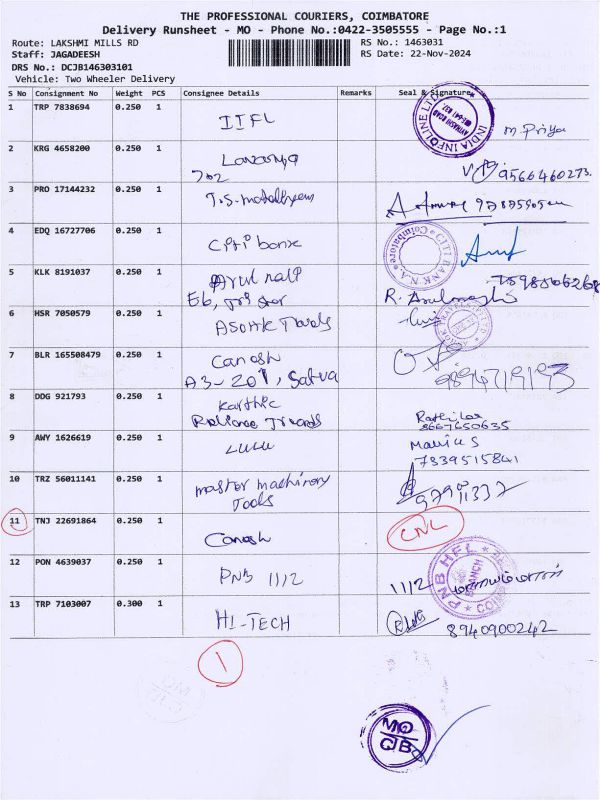 THE PROFESSIONAL COURIERS, COIMBATORE
Delivery Runsheet - MO - Phone No.:0422-3505555 - Page No.:1
Route: LAKSHMI MILLS RD
RS No.: 1463031
Staff: JAGADEESH
RS Date: 22-Nov-2024
DRS No.: DCJB146303101
Vehicle: Two Wheeler Delivery
S No Consignment No Weight PCS Consignee Details Remarks Seal & Signature
1 TRP 7838694 0.250 1 IIFL INDIA INFOLINE LTD M. Priya
2 KRG 4658200 0.250 1 9566460273
3 PRO 17144232 0.250 1
4 EDQ 16727706 0.250 1 Citi bank CITI BANK N.A. Coimbatore
5 KLK 8191037 0.250 1 Arul mali
E6, Tristar
6 HSR 7050579 0.250 1 Asohk Travals
7 BLR 165508479 0.250 1 Ganesh
A3-201, Satva 9894719193
8 DDG 921793 0.250 1 Karthic
Raliance Trends 8667650635
9 AWY 1626619 0.250 1 LULU
7339515841
10 TRZ 56011141 0.250 1 master machinery
Tools
11 TNJ 22691864 0.250 1 Ganesh CNL
12 PON 4639037 0.250 1 PNB 1112 PNB HFL BRANCH 1112
13 TRP 7103007 0.300 1 HI-TECH 8940900242
1
MO
CJB